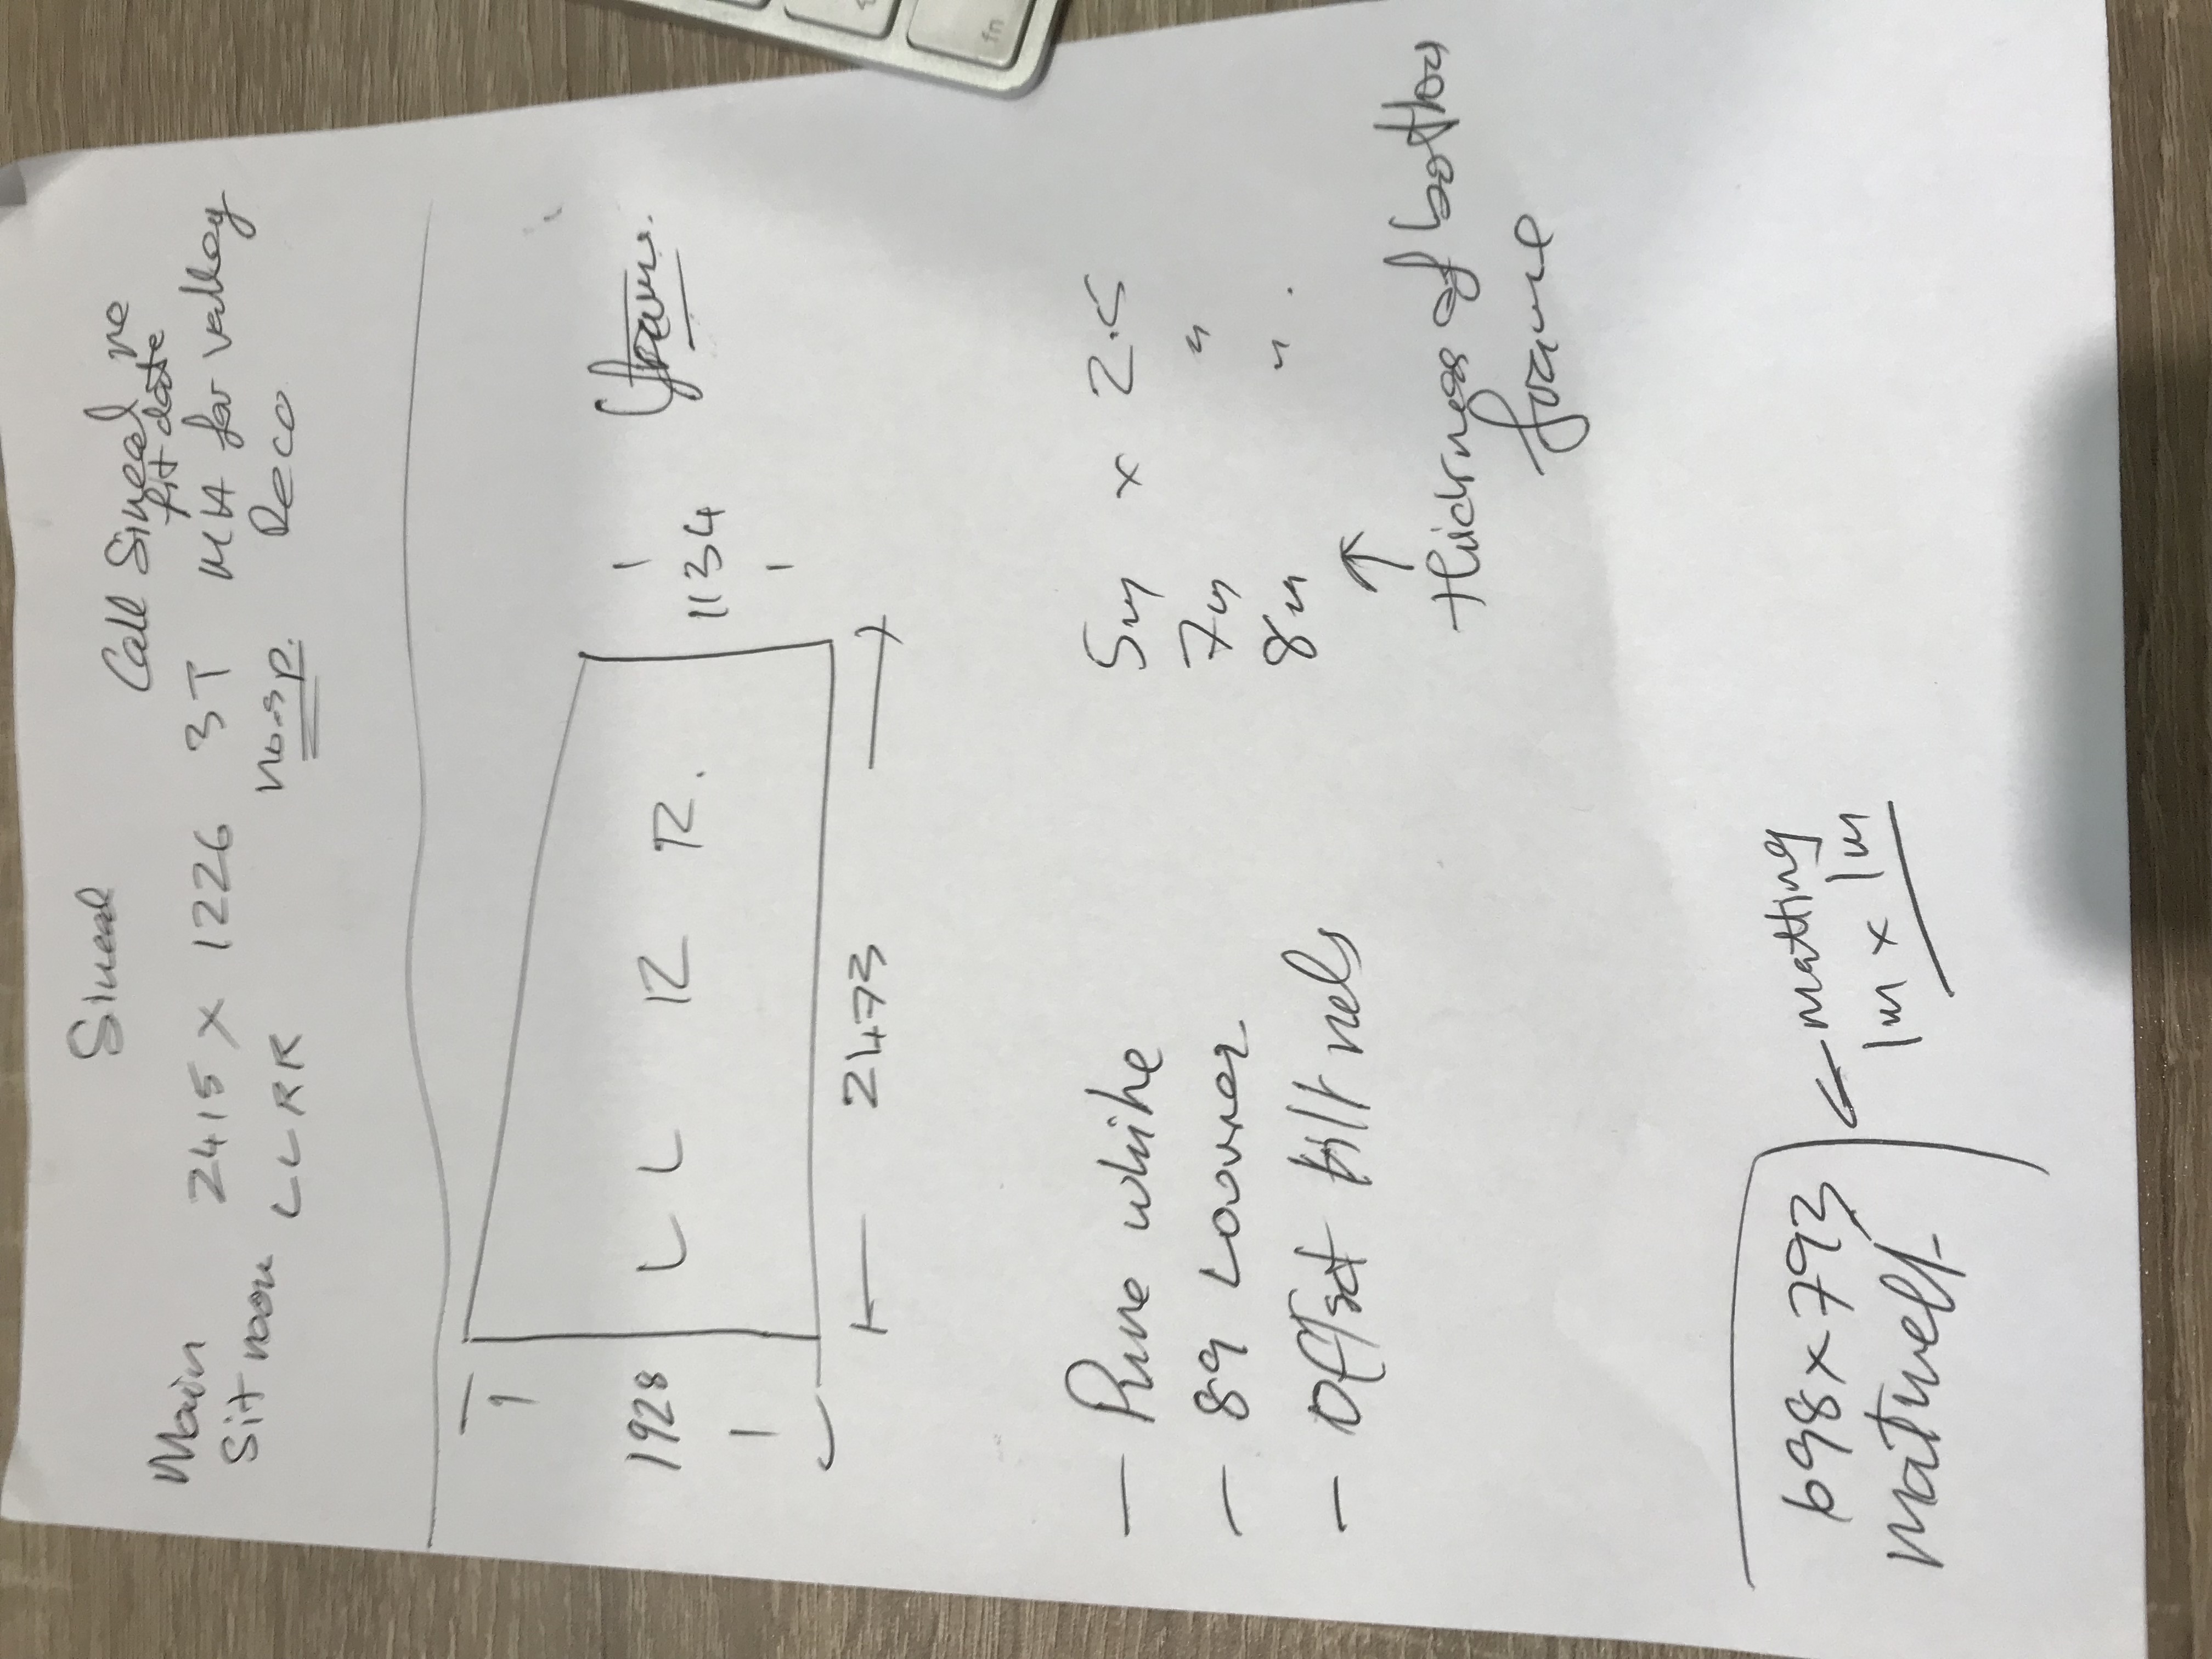 Sinead
Call Sinead re
fit date
Main 2415 x 1226 3T MH for valley
Sit room LLRR no sp. Deco
1928 L L R R. 1134
2473
- Pure white 5m x 2.5
- 89 Louvre 7m "
- Offset tilt rels 8m " .
↑
thickness of bottom
frame
698 x 793 ← matting
matwell 1m x 1m
fn